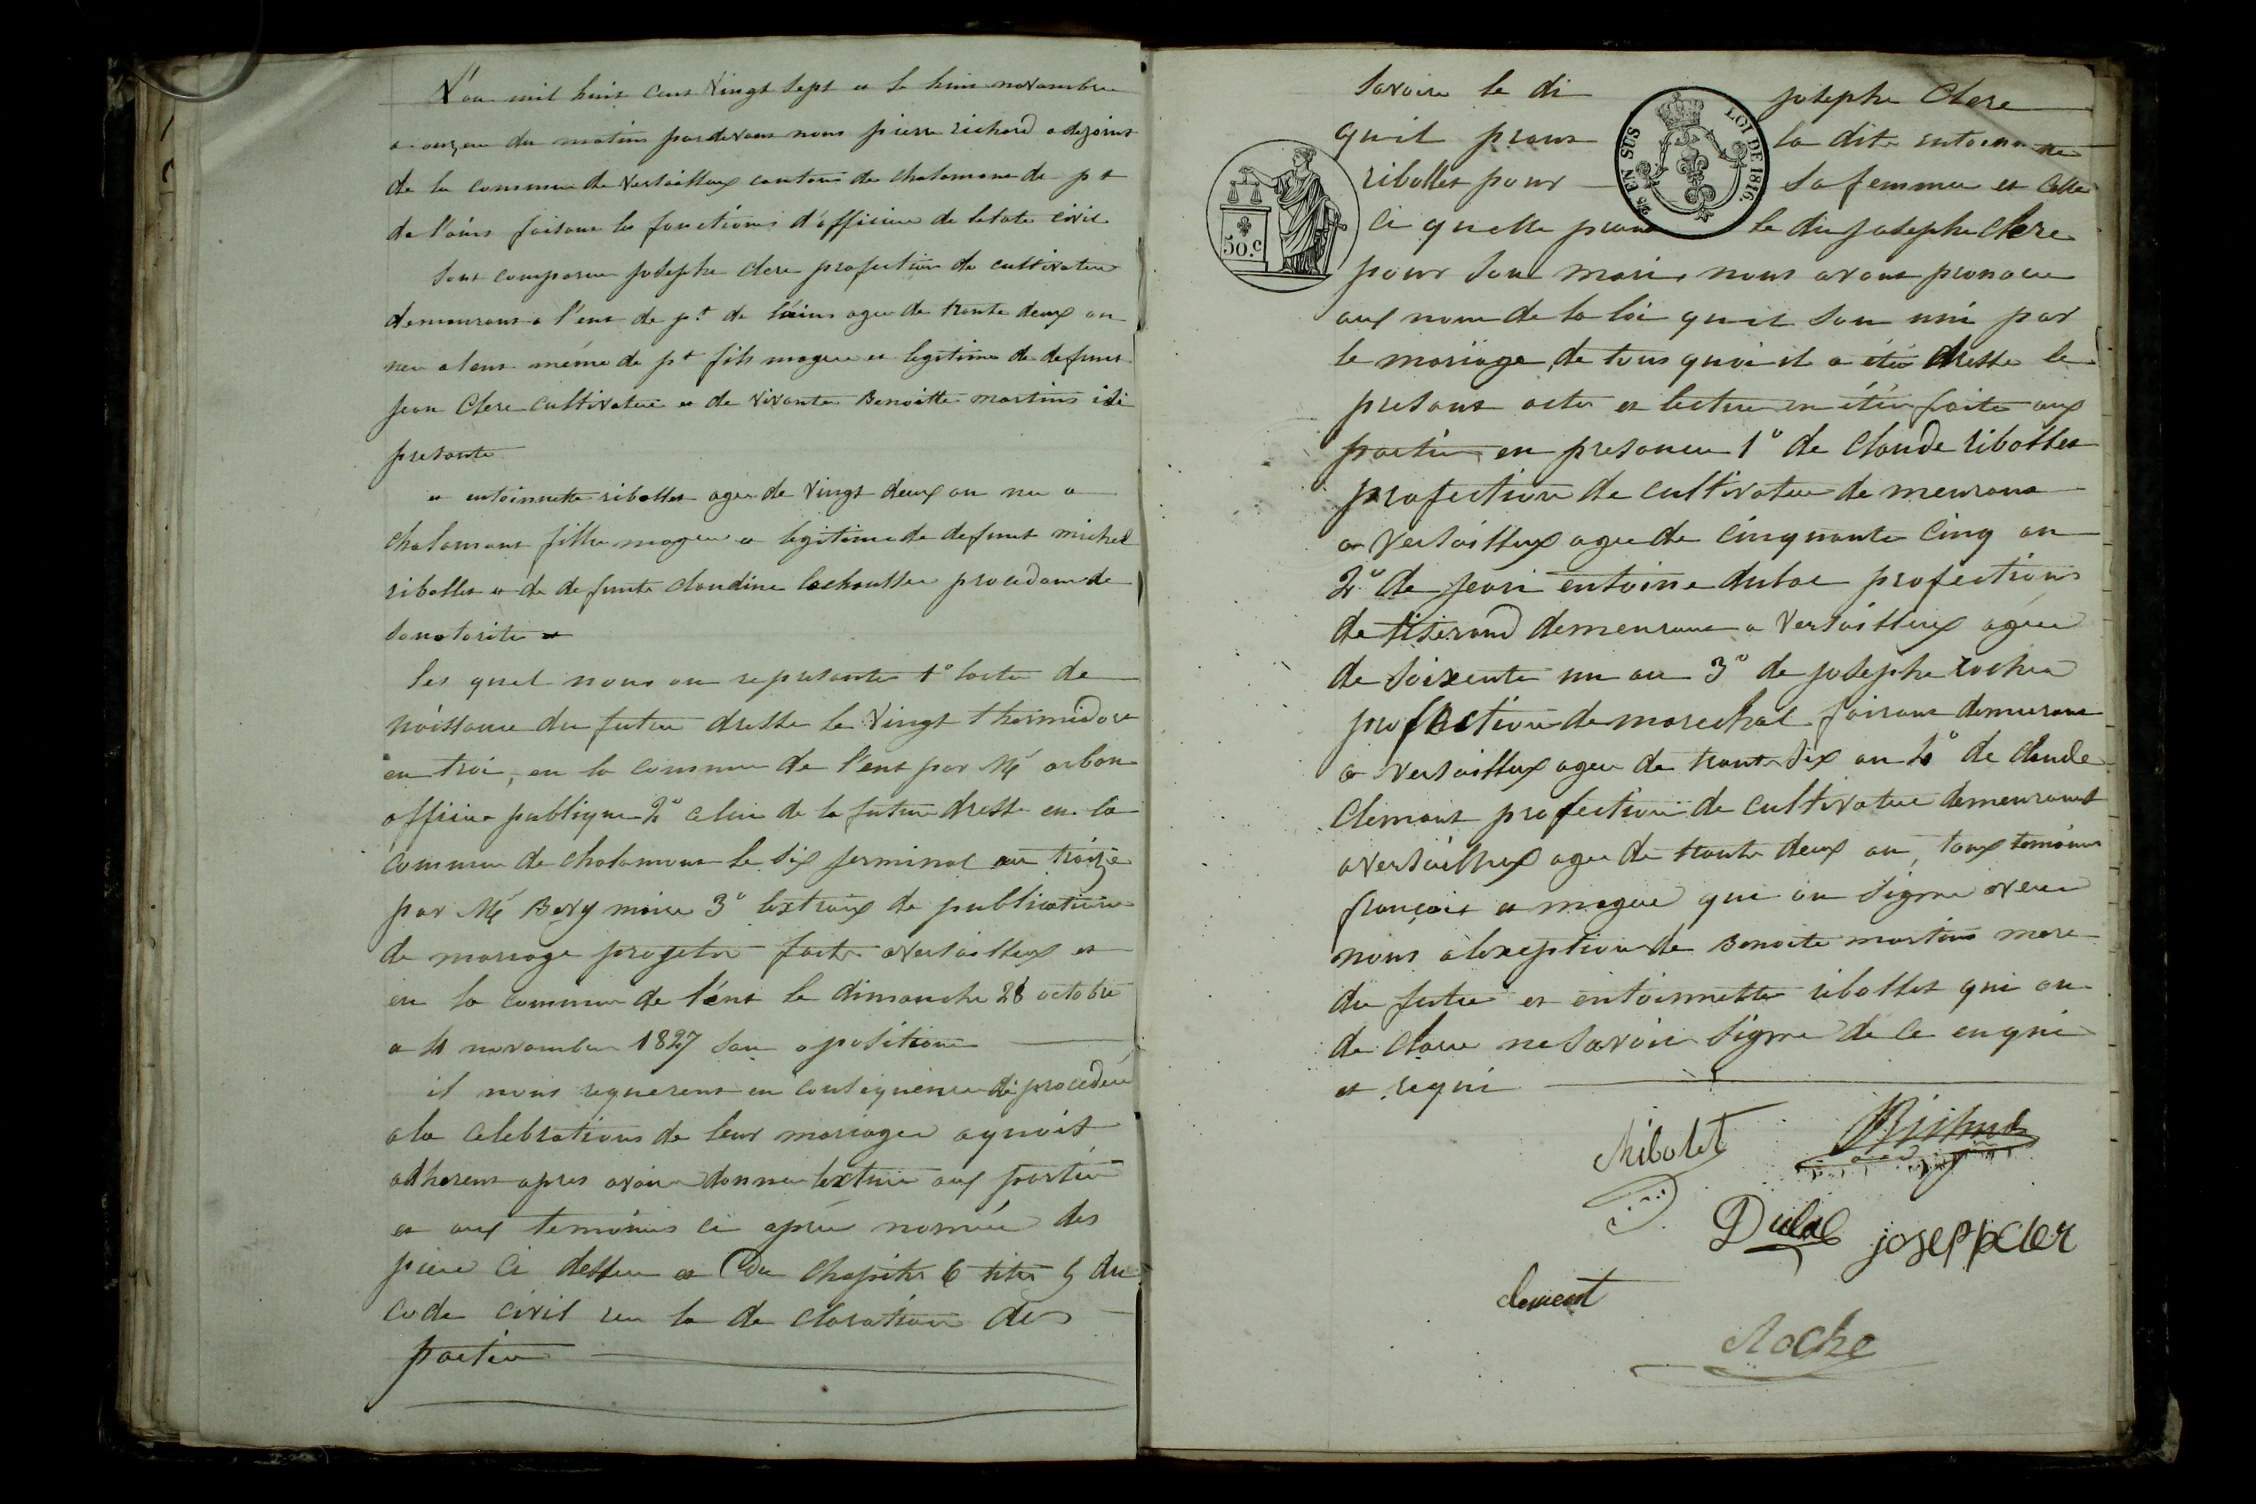 L'an mil huit cens vingt sept et le huit novambre
a onze eu du matin pardevans nous pierre richard adejoint
de la commune de versailleux cantons de chalamon de pt
de l'ains faisans les fonctions d'officier de letate civil
sont comparu josephe clere profection de cultivateur
demeurans a l'ent de pt de l'ains agee de trante deux an
nee a lent méme de pt fils mageur et legitime de defunt
jean Clere cultivateur et de vivante Benoitte martins ici
presante
et entoinnette ribollet agee de vingt deux an nee a
chalamont fille mageur et legitime de defunt michel
ribollet et de defunte claudine lachoutte procedant de
son otorite
les quel nous on representer 1° lacte de
naissance du futur dresse le vingt thermidore
an troi, en la commune de l'ent par Mé arban
officier publique 2° celui de la future dresse en la
commune de chalamont le six jerminal an treize
par Mé Bery maire 3° lextraix de publications
de mariage projeter faite a versailleux et
en la commune de l'ént le dimanche 28 octobre
a 4 novambre 1827 san oposition
il nous requerent en consequence de procedér
a la celebrations de leur mariage aquoit
adherent apres avoir donner lecture aux partie
et aux temoins ci aprée nomée des
piece ci dessu et du chapitre 6 titre 5 du
code civil sur la de claration des
partie
savoire le di josephe Clere
quil prans la dite entoinnette
ribollet pour sa femme et celle
ci quelle prans le di josephe clere
pour son mari, nous avons pronocer
aux nom de la loi quil son uni par
le mariage, de tous quoi il a étée dresse le
presant acte et lecture en étée faite aux
partie en presance 1° de claude ribollet
profection de cultivateur de meurans
a versailleux agee de cinquante cinq an
2° de jean entoine dulac profections
de tiserand demeurans a versailleux agée
de soixente un an 3° de josephe rocher
profection de marechal fairant demeurans
a versailleux agee de trante six an 4° de claude
clémant profection de cultivateur demeurant
a versailleux agee de trante deux an, toux temoins
françois et mageur qui on signe avec
nous alexeption de Benoite martins mere
du futur et entoinnette ribollet qui on
de clare ne savoir signe de ce enqui
et requi
50.c
25 EN SUS
LOI DE 1816.
Ribolet
Richard
Dulac
joseph cler
clement
Roche